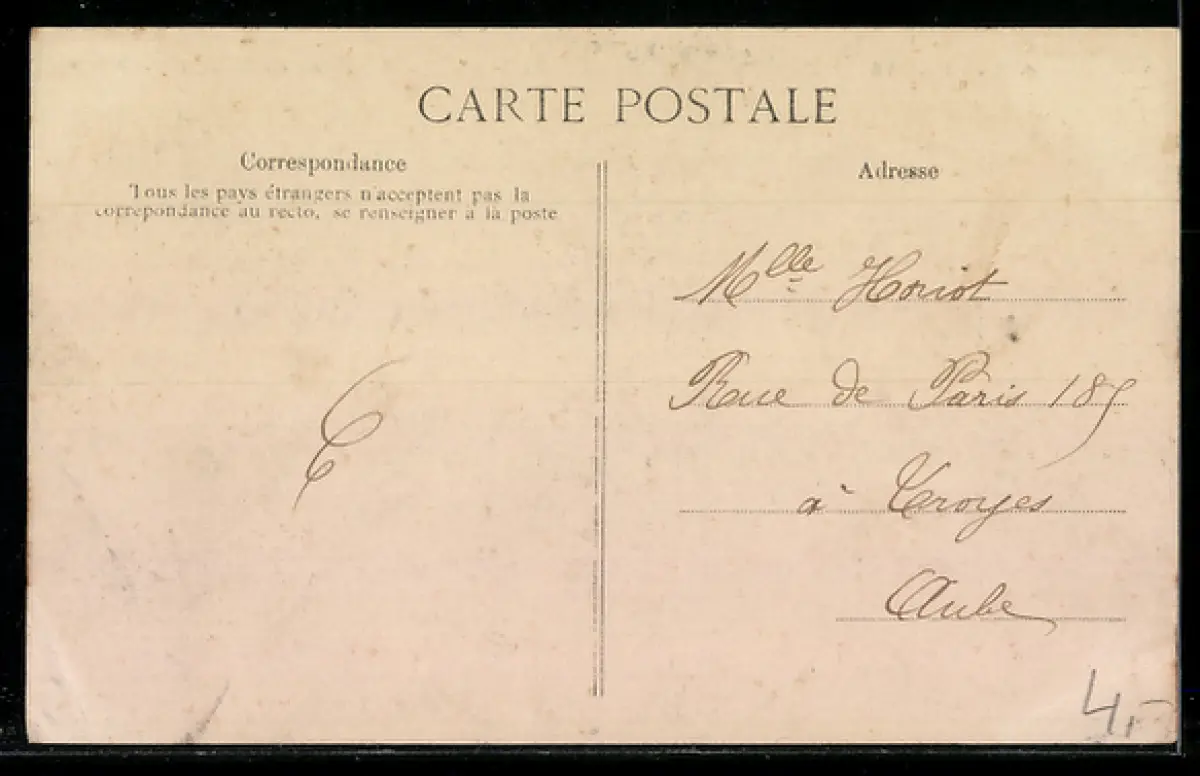 CARTE POSTALE
Correspondance
Tous les pays étrangers n'acceptent pas la
correpondance au recto, se renseigner à la poste
Adresse
Mlle Horiot
Rue de Paris 185
à Troyes
Aube
4,-